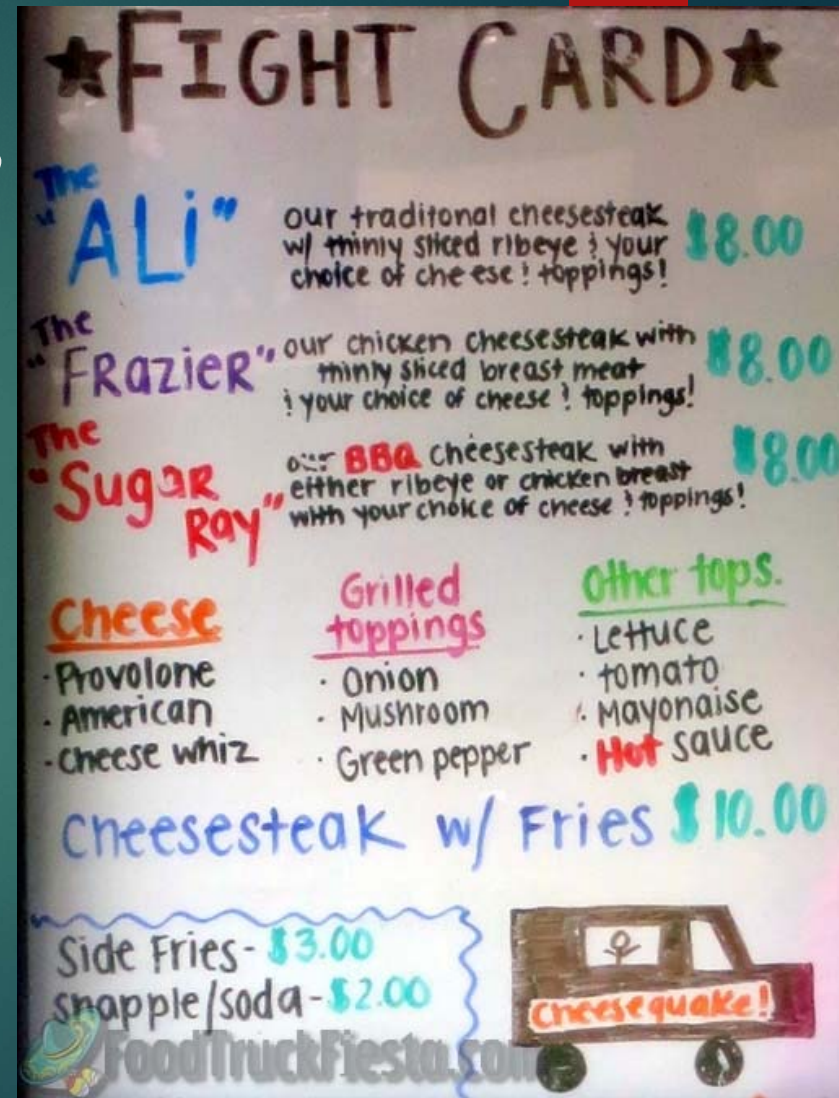 ★FIGHT CARD★
The
"ALi"
our traditonal cheesesteak
w/ thinly sliced ribeye & your
choice of cheese & toppings!
$8.00
The
"FRazieR"
our chicken cheesesteak with
thinly sliced breast meat
& your choice of cheese & toppings!
$8.00
The
"Sugar
Ray"
our BBQ cheesesteak with
either ribeye or chicken breast
with your choice of cheese & toppings!
$8.00
Cheese
· Provolone
· American
· Cheese whiz
Grilled
toppings
· Onion
· Mushroom
· Green pepper
Other tops.
· Lettuce
· tomato
· Mayonaise
· Hot sauce
Cheesesteak w/ Fries $10.00
Side Fries- $3.00
snapple/soda- $2.00
Cheesequake!
FoodTruckFiesta.com